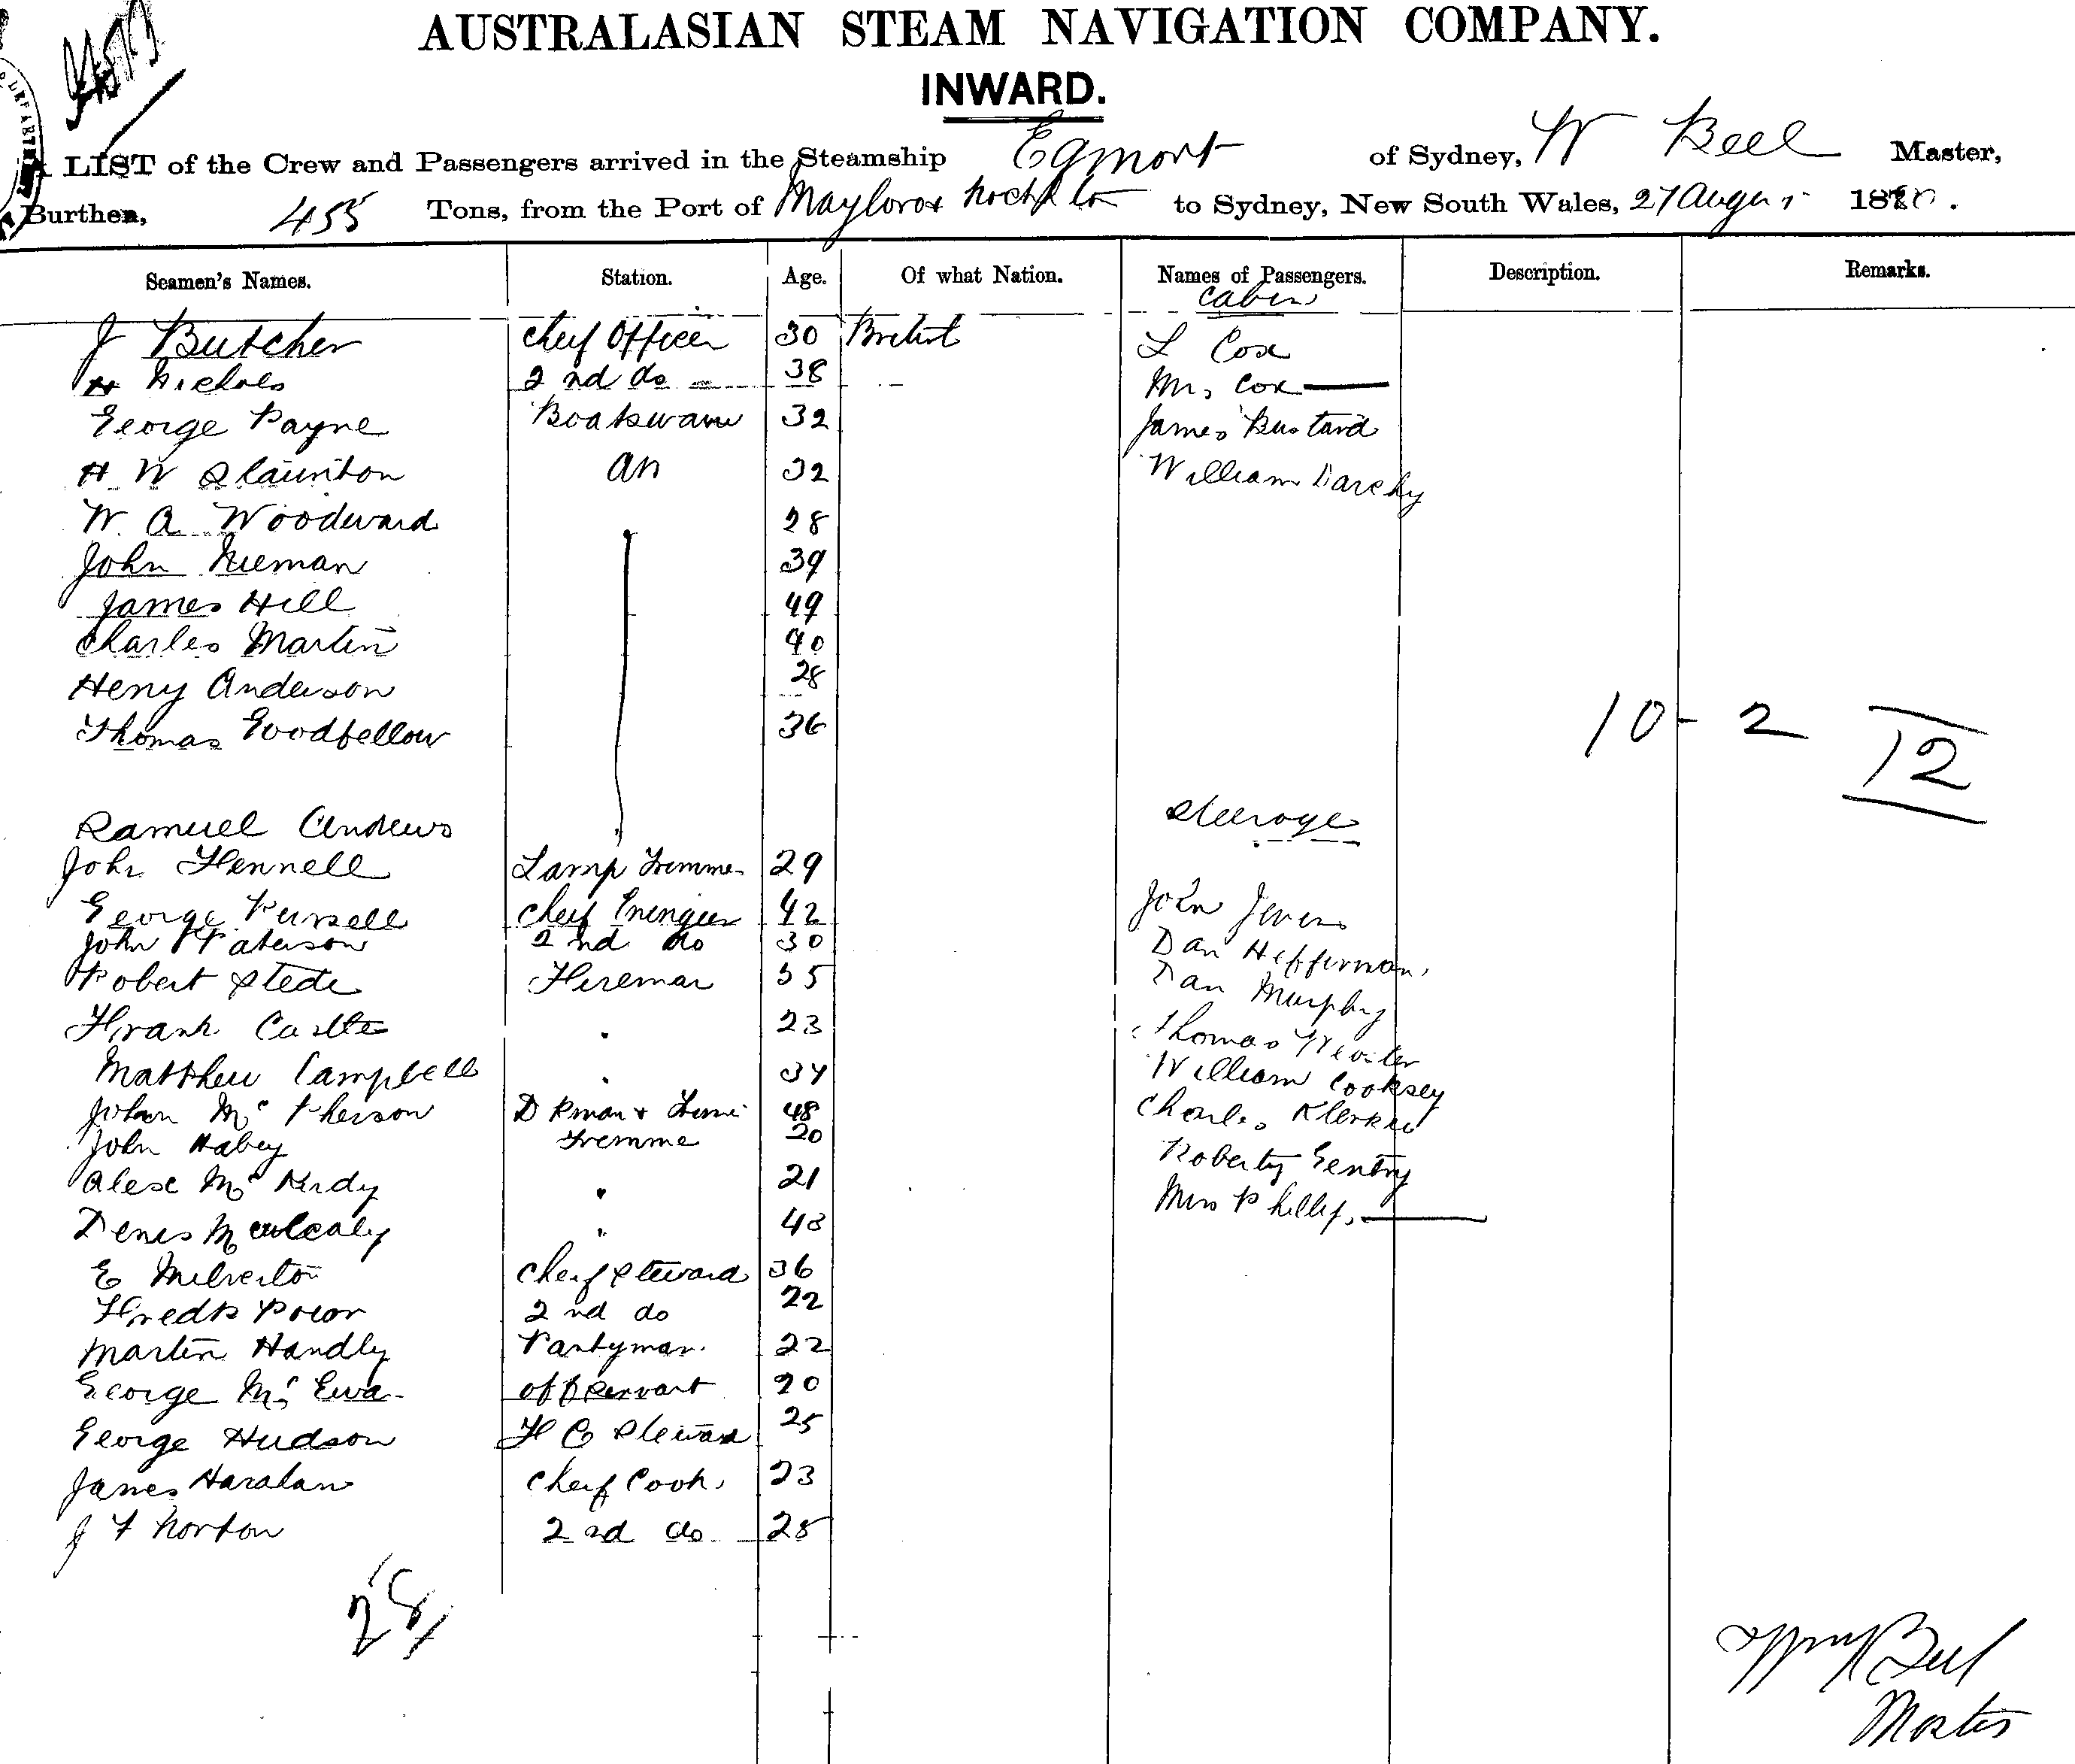 AUSTRALASIAN STEAM NAVIGATION COMPANY.
INWARD.
LIST of the Crew and Passengers arrived in the Steamship Egmont of Sydney, W Beel Master,
Burthen, 455 Tons, from the Port of to Sydney, New South Wales, 27 Augus 1880.
Seamen's Names. Station. Age. Of what Nation. Names of Passengers. Description. Remarks.
Cabin
J Butcher Cheif Officer 30 British L Cox
H Nichols 2nd do 38 Mrs Cox
George Payne Boatswain 32 James Bustard
H W Staunton AB 32 William Darchy
W. A. Woodward 28
John Nieman 39
James Hill 49
Charles Martin 40
Henry Anderson 28
Thomas Goodfellow 36
10 - 2 12
Samuel Andrews
Steerage
John Fennell Lamp Trimmer 29
George Russell Cheif Eningeer 42 John Jevens
John Paterson 2nd do 30 Dan Heffernan
Robert Stede Fireman 35 Dan Murphy
Frank Castle 23 Thomas
Matthew Campbell 34 William Cooksey
John McPherson D Kman + 48 Charles
John Habey Tremme 20
Robert Gentry
Alexe McKirdy 21
Mrs Phillips
Denis Mulcahy 43
E Milverton Cheif Steward 36
Fredk Prior 2nd do 22
Martin Handly Pantyman 22
George McEwa off Servant 20
George Hudson F C Steward 25
James Harahan Cheif Cook 23
J F Norton 2nd do 28
28
Wm Beel
Master